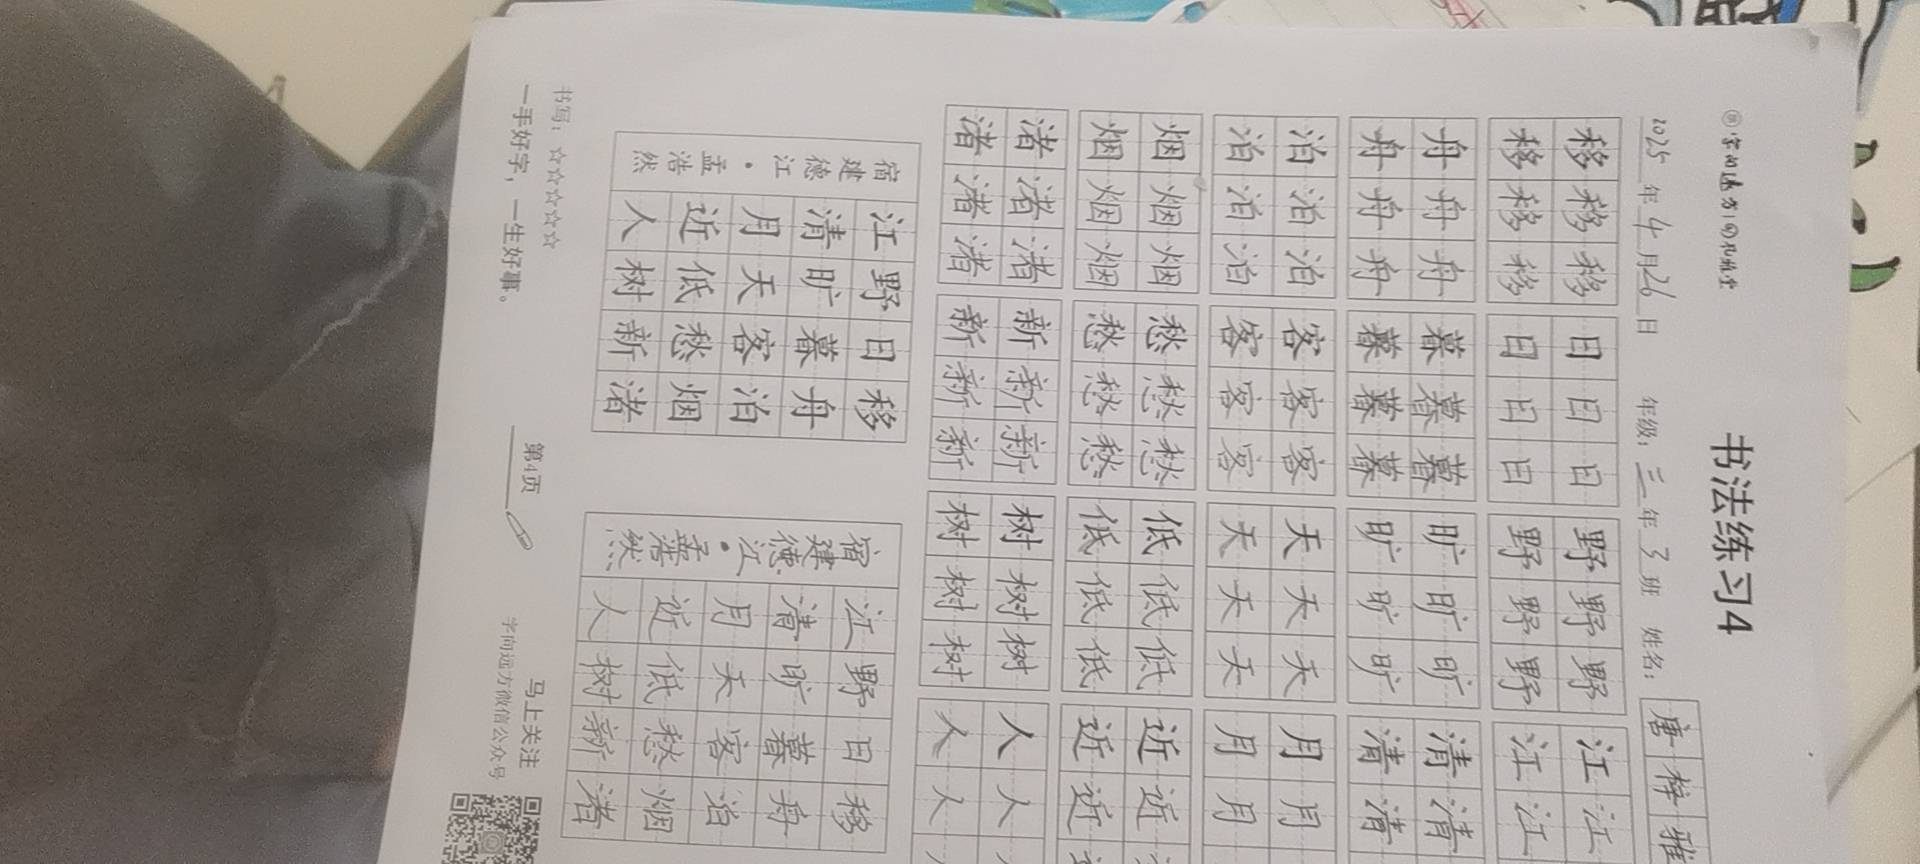 书法练习4
2025年4月26日 年级:三年3班 姓名:唐梓雅
移移移 日日日 野野野 江江
移移移 日日日 野野野 江江
舟舟舟 暮暮暮 旷旷旷 清清
舟舟舟 暮暮暮 旷旷旷 清清
泊泊泊 客客客 天天天 月月
泊泊泊 客客客 天天天 月月
烟烟烟 愁愁愁 低低低 近近
烟烟烟 愁愁愁 低低低 近近
渚渚渚 新新新 树树树 人人
渚渚渚 新新新 树树树 人人
移舟泊烟渚
日暮客愁新
野旷天低树
江清月近人
宿建德江·孟浩然
移舟泊烟渚
日暮客愁新
野旷天低树
江清月近人
宿建德江·孟浩然
书写:☆☆☆☆☆
一手好字，一生好事。
第4页
马上关注
字向远方微信公众号